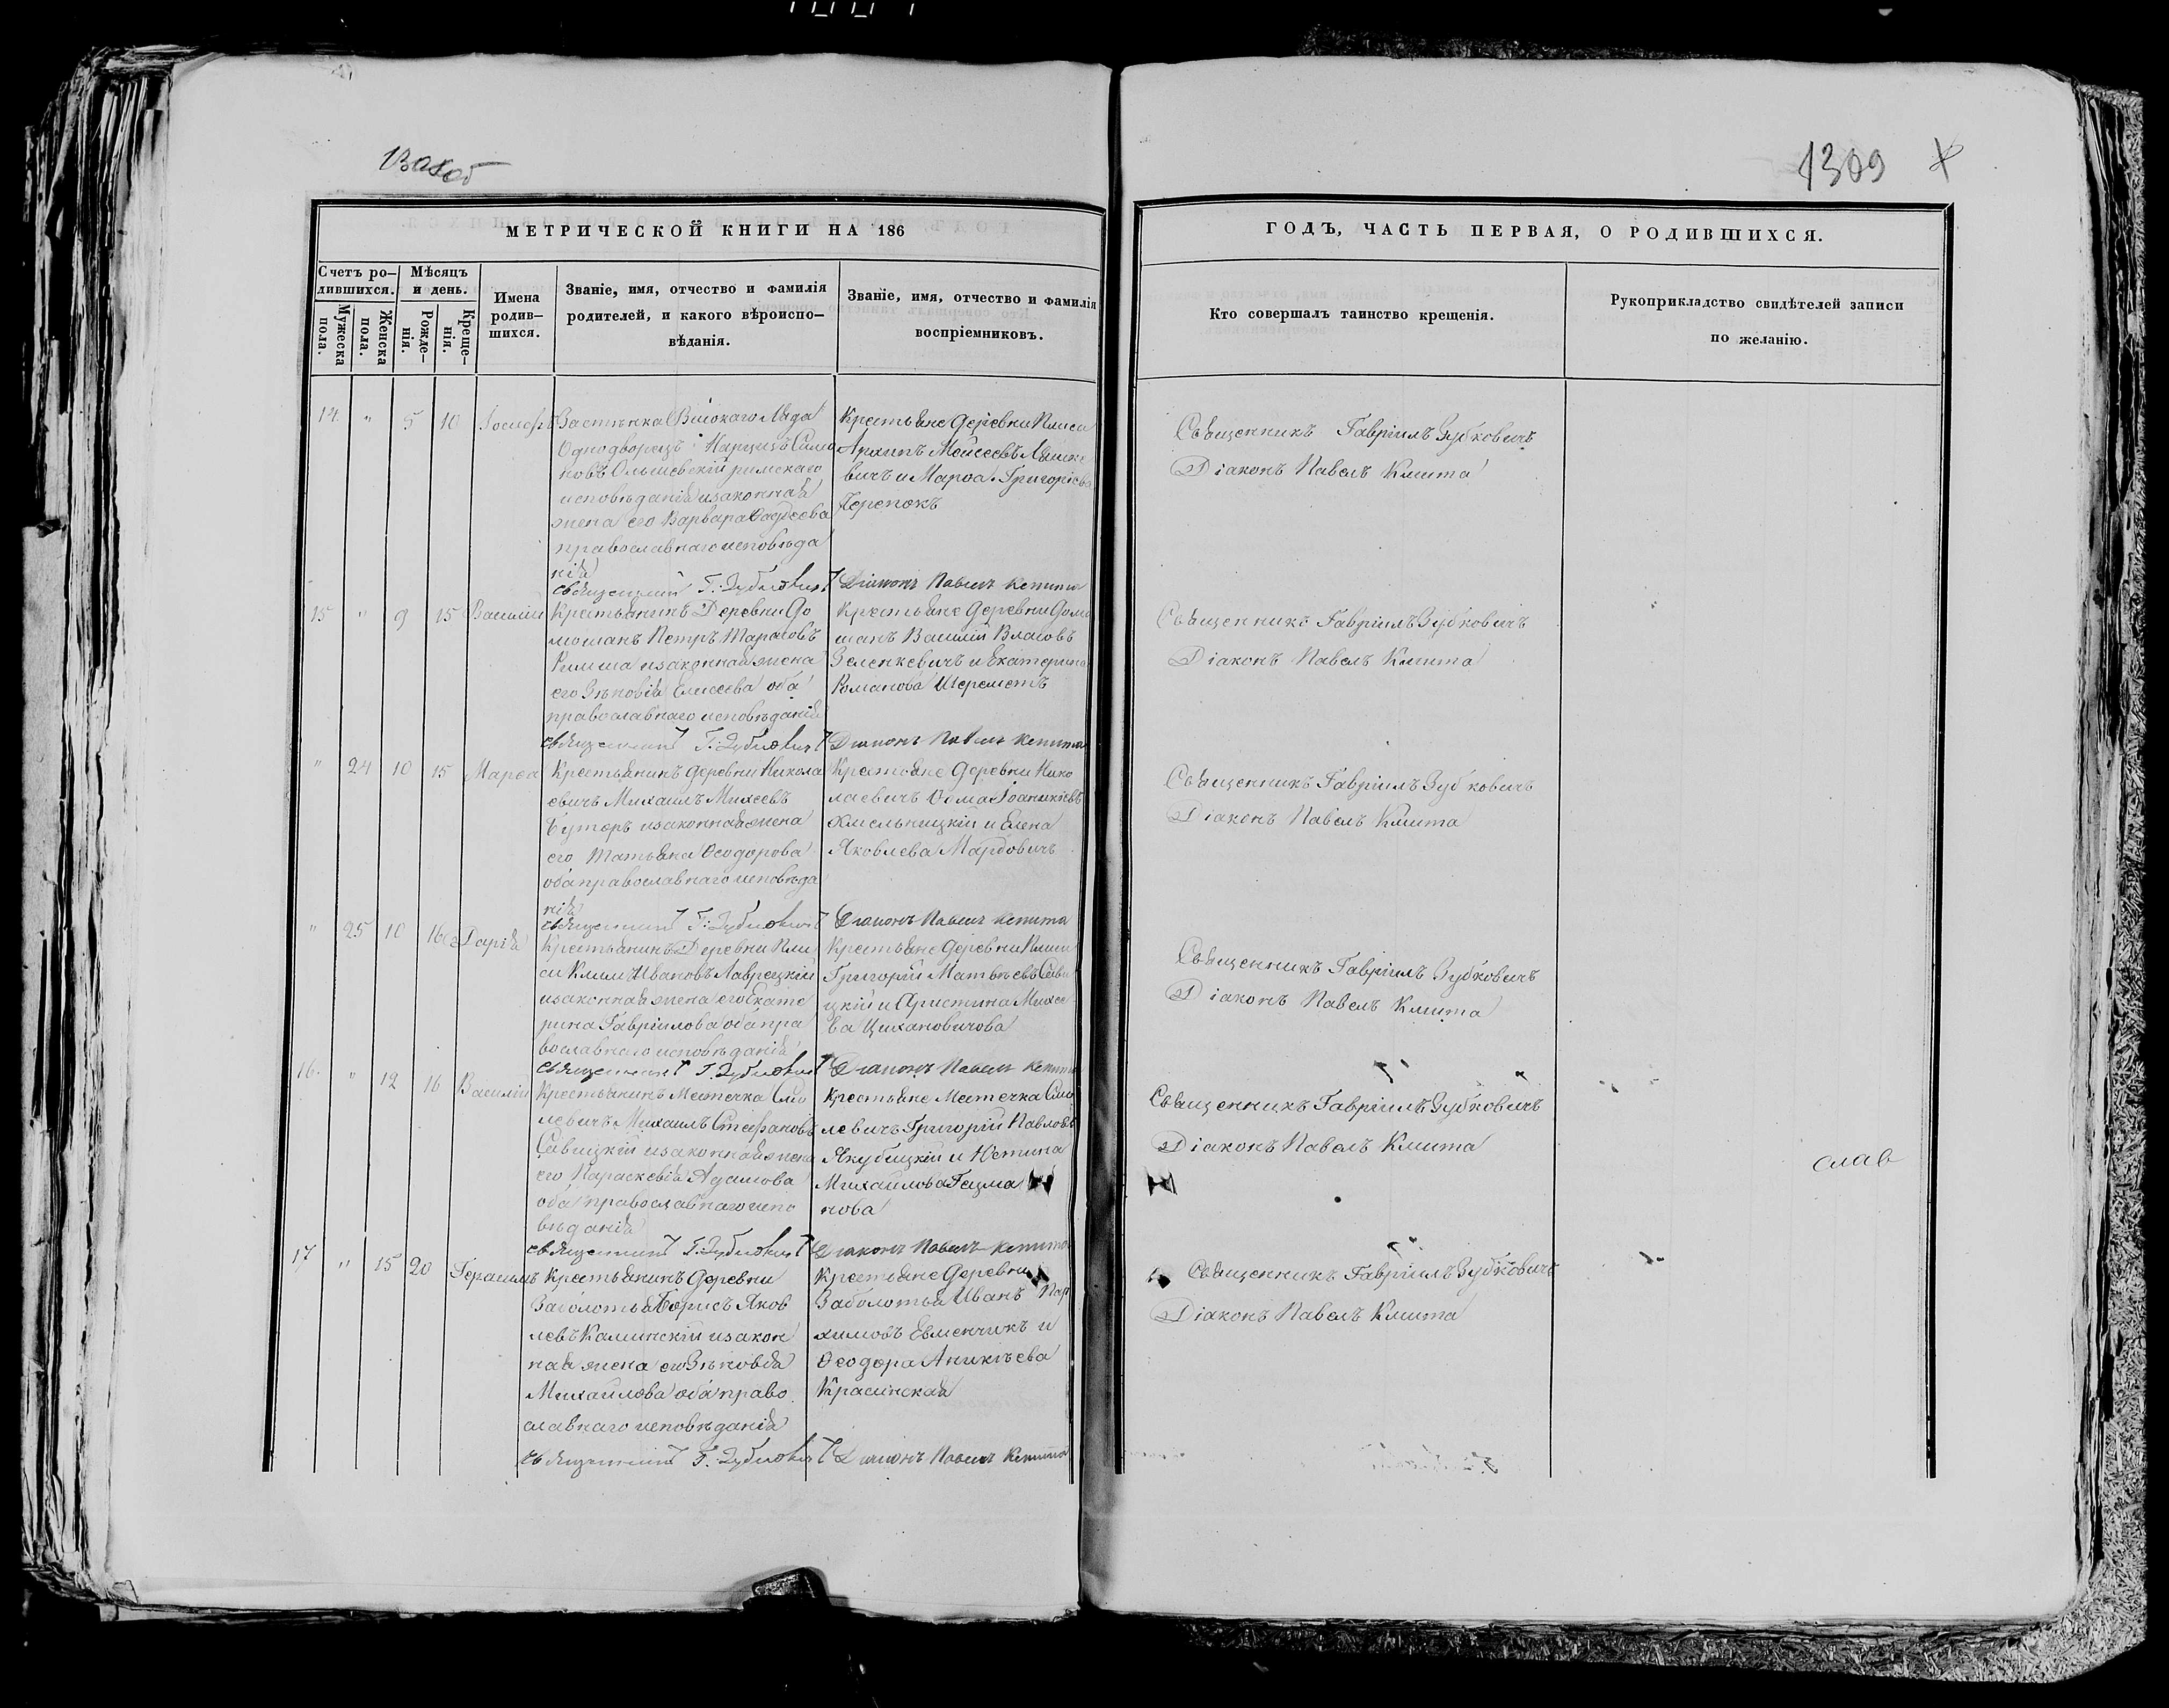 1309
МЕТРИЧЕСКОЙ КНИГИ НА 186
ГОДЪ, ЧАСТЬ ПЕРВАЯ, О РОДИВШИХСЯ.
Счетъ ро-
дившихся.
Мужеска
пола.
Женска
пола.
Мѣсяцъ
и день.
Рожде-
нія.
Креще-
нія.
Имена
родив-
шихся.
Званіе, имя, отчество и фамилія
родителей, и какого вѣроиспо-
вѣданія.
Званіе, имя, отчество и фамилія
воспріемниковъ.
Кто совершалъ таинство крещенія.
Рукоприкладство свидѣтелей записи
по желанію.
14 " 5 10 Іосифъ
Застѣнка
Однодворецъ Нарцизъ Симо
новъ Ольшевскій римскаго
исповѣданія и законная
жена его Варвара Фадеева
православнаго исповѣда
нія
Священникъ Г. Зубковичъ
Крестьяне деревни Плиси
Архипъ Моисеевъ
вичъ и Марѳа Григоріева
Терепокъ
Діаконъ Павелъ Кмита
Священникъ Гавріилъ Зубковичъ
Діаконъ Павелъ Кмита
15 " 9 15 Василій
Крестьянинъ Деревни До
мошанъ Петръ Тарасовъ
и законная жена
его Зѣновія Елисеева оба
православнаго исповѣданія
Священникъ Г. Зубковичъ
Крестьяне деревни Домо
шанъ Василій Власовъ
Зеленкевичъ и Екатерина
Романова Шереметъ
Діаконъ Павелъ Кмита
Священникъ Гавріилъ Зубковичъ
Діаконъ Павелъ Кмита
" 24 10 15 Марѳа
Крестьянинъ деревни Никола
евичъ Михаилъ Михеевъ
Буторъ и законная жена
его Татьяна Ѳеодорова
оба православнаго исповѣда
нія
Священникъ Г. Зубковичъ
Крестьяне Деревни Нико
лаевичъ Ѳома Іоанникіевъ
Хмельницкій и Елена
Яковлева Мардовичъ
Діаконъ Павелъ Кмита
Священникъ Гавріилъ Зубковичъ
Діаконъ Павелъ Кмита
" 25 10 16 Дарія
Крестьянинъ Деревни Пли
си Климъ Ивановъ Лаврецкій
и законная жена его Екате
рина Гавріилова оба пра
вославнаго исповѣданія
Священникъ Г. Зубковичъ
Крестьяне деревни Плиси
Григорій Матвѣевъ Сави
цкій и Христина Михе
ва Цихановичова
Діаконъ Павелъ Кмита
Священникъ Гавріилъ Зубковичъ
Діаконъ Павелъ Кмита
16. " 12 16 Василій
Крестьянинъ Местечка Смо
левичъ Михаилъ Стефановъ
Савицкій и законная жена
его Параскевія Адамова
оба православнаго испо
вѣданія
Священникъ Г. Зубковичъ
Крестьяне Местечка Смо
левичъ Григорій Павловъ
Якубицкій и Юстина
Михаилова Гецма
нова
Діаконъ Павелъ Кмита
Священникъ Гавріилъ Зубковичъ
Діаконъ Павелъ Кмита
слав
17 " 15 20 Герасимъ
Крестьянинъ деревни
Заболотья Борисъ Яков
левъ Калинскій и закон
ная жена его Зѣновія
Михаилова оба право
славнаго исповѣданія
Священникъ Г. Зубковичъ
Крестьяне Деревни
Заболотья Иванъ Пар
химовъ Евменчикъ и
Ѳеодора Аникіева
Красинская
Діаконъ Павелъ Кмита
Священникъ Гавріилъ Зубковичъ
Діаконъ Павелъ Кмита